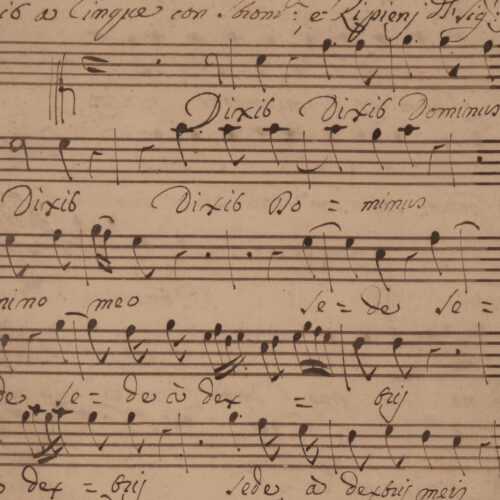 a Cinque con Strom.ti e Ripieni
Dixit Dixit Dominus
Dixit Dixit Do = minus
mino meo se = de se =
de se = de à dex = tris
dex = tris sede à dextris meis